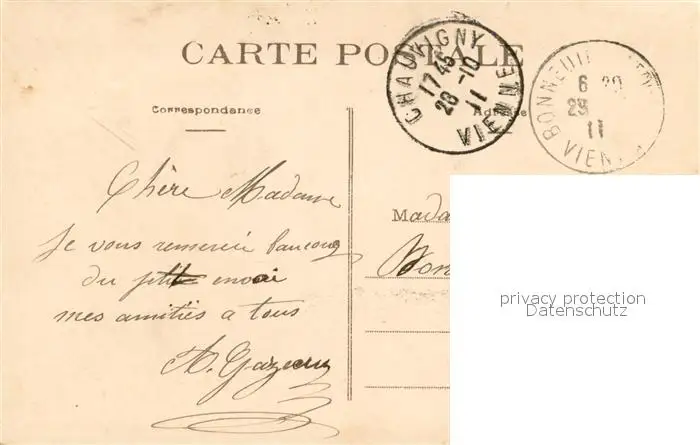 CARTE POSTALE
CHAUVIGNY
1745
28 - 10
11
VIENNE
BONNEUIL
6
11
VIEN
Correspondance
Adresse
Chère Madame
Je vous remercie baucoup
du ptit envoi
mes amitiés a tous
Mada
Bon
privacy protection
Datenschutz